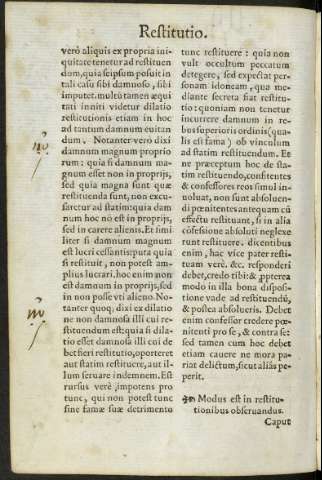 Restitutio.
verò aliquis ex propria ini-
quitate tenetur ad restituen
dum, quia seipsum posuit in
tali casu sibi damnoso, sibi
imputet. multũ tamen æqui
tati inniti videtur dilatio
restitutionis etiam in hoc
ad tantum damnum euitan
dum. Notanter verò dixi
damnum magnum proprio-
rum: quia si damnum ma-
gnum esset non in proprijs,
sed quia magna sunt quæ
restituenda sunt, non excu-
saretur ad statim: quia dam
num hoc nõ est in proprijs,
sed in carere alienis. Et simi
liter si damnum magnum
est lucri cessantis: puta quia
si restituit, non potest am-
plius lucrari. hoc enim non
est damnum in proprijs, sed
in non posse vti alieno. No-
tanter quoq; dixi ex dilatio
ne non damnosa illi cui re-
stituendum est: quia si dila-
tio esset damnosa illi cui de
bet fieri restitutio, oporteret
aut statim restituere, aut il-
lum seruare indemnem. Est
rursus verè impotens pro
tunc, qui non potest tunc
sine famæ suæ detrimento
tunc restituere: quia non
vult occultum peccatum
detegere, sed expectat per-
sonam idoneam, qua me-
diante secreta fiat restitu-
tio: quoniam non tenetur
incurrere damnum in re-
bus superioris ordinis (qua-
lis est fama) ob vinculum
ad statim restituendum. Et
ne præceptum hoc de sta-
tim restituendo, confitentes
& confessores reos simul in
uoluat, non sunt absoluen-
di pœnitentes antequam cũ
effectu restituant, si in alia
cõfessione absoluti neglexe
runt restituere. dicentibus
enim, hac vice pater resti-
tuam verè. &c. responderi
debet, credo tibi: & ꝓpterea
modo in illa bona disposi-
tione vade ad restituendũ,
& postea absolueris. Debet
enim confessor credere pœ-
nitenti pro se, & contra se:
sed tamen cum hoc debet
etiam cauere ne mora pa-
riat delictum, sicut aliàs pe-
perit.
Modus est in restitu-
tionibus obseruandus.
Caput